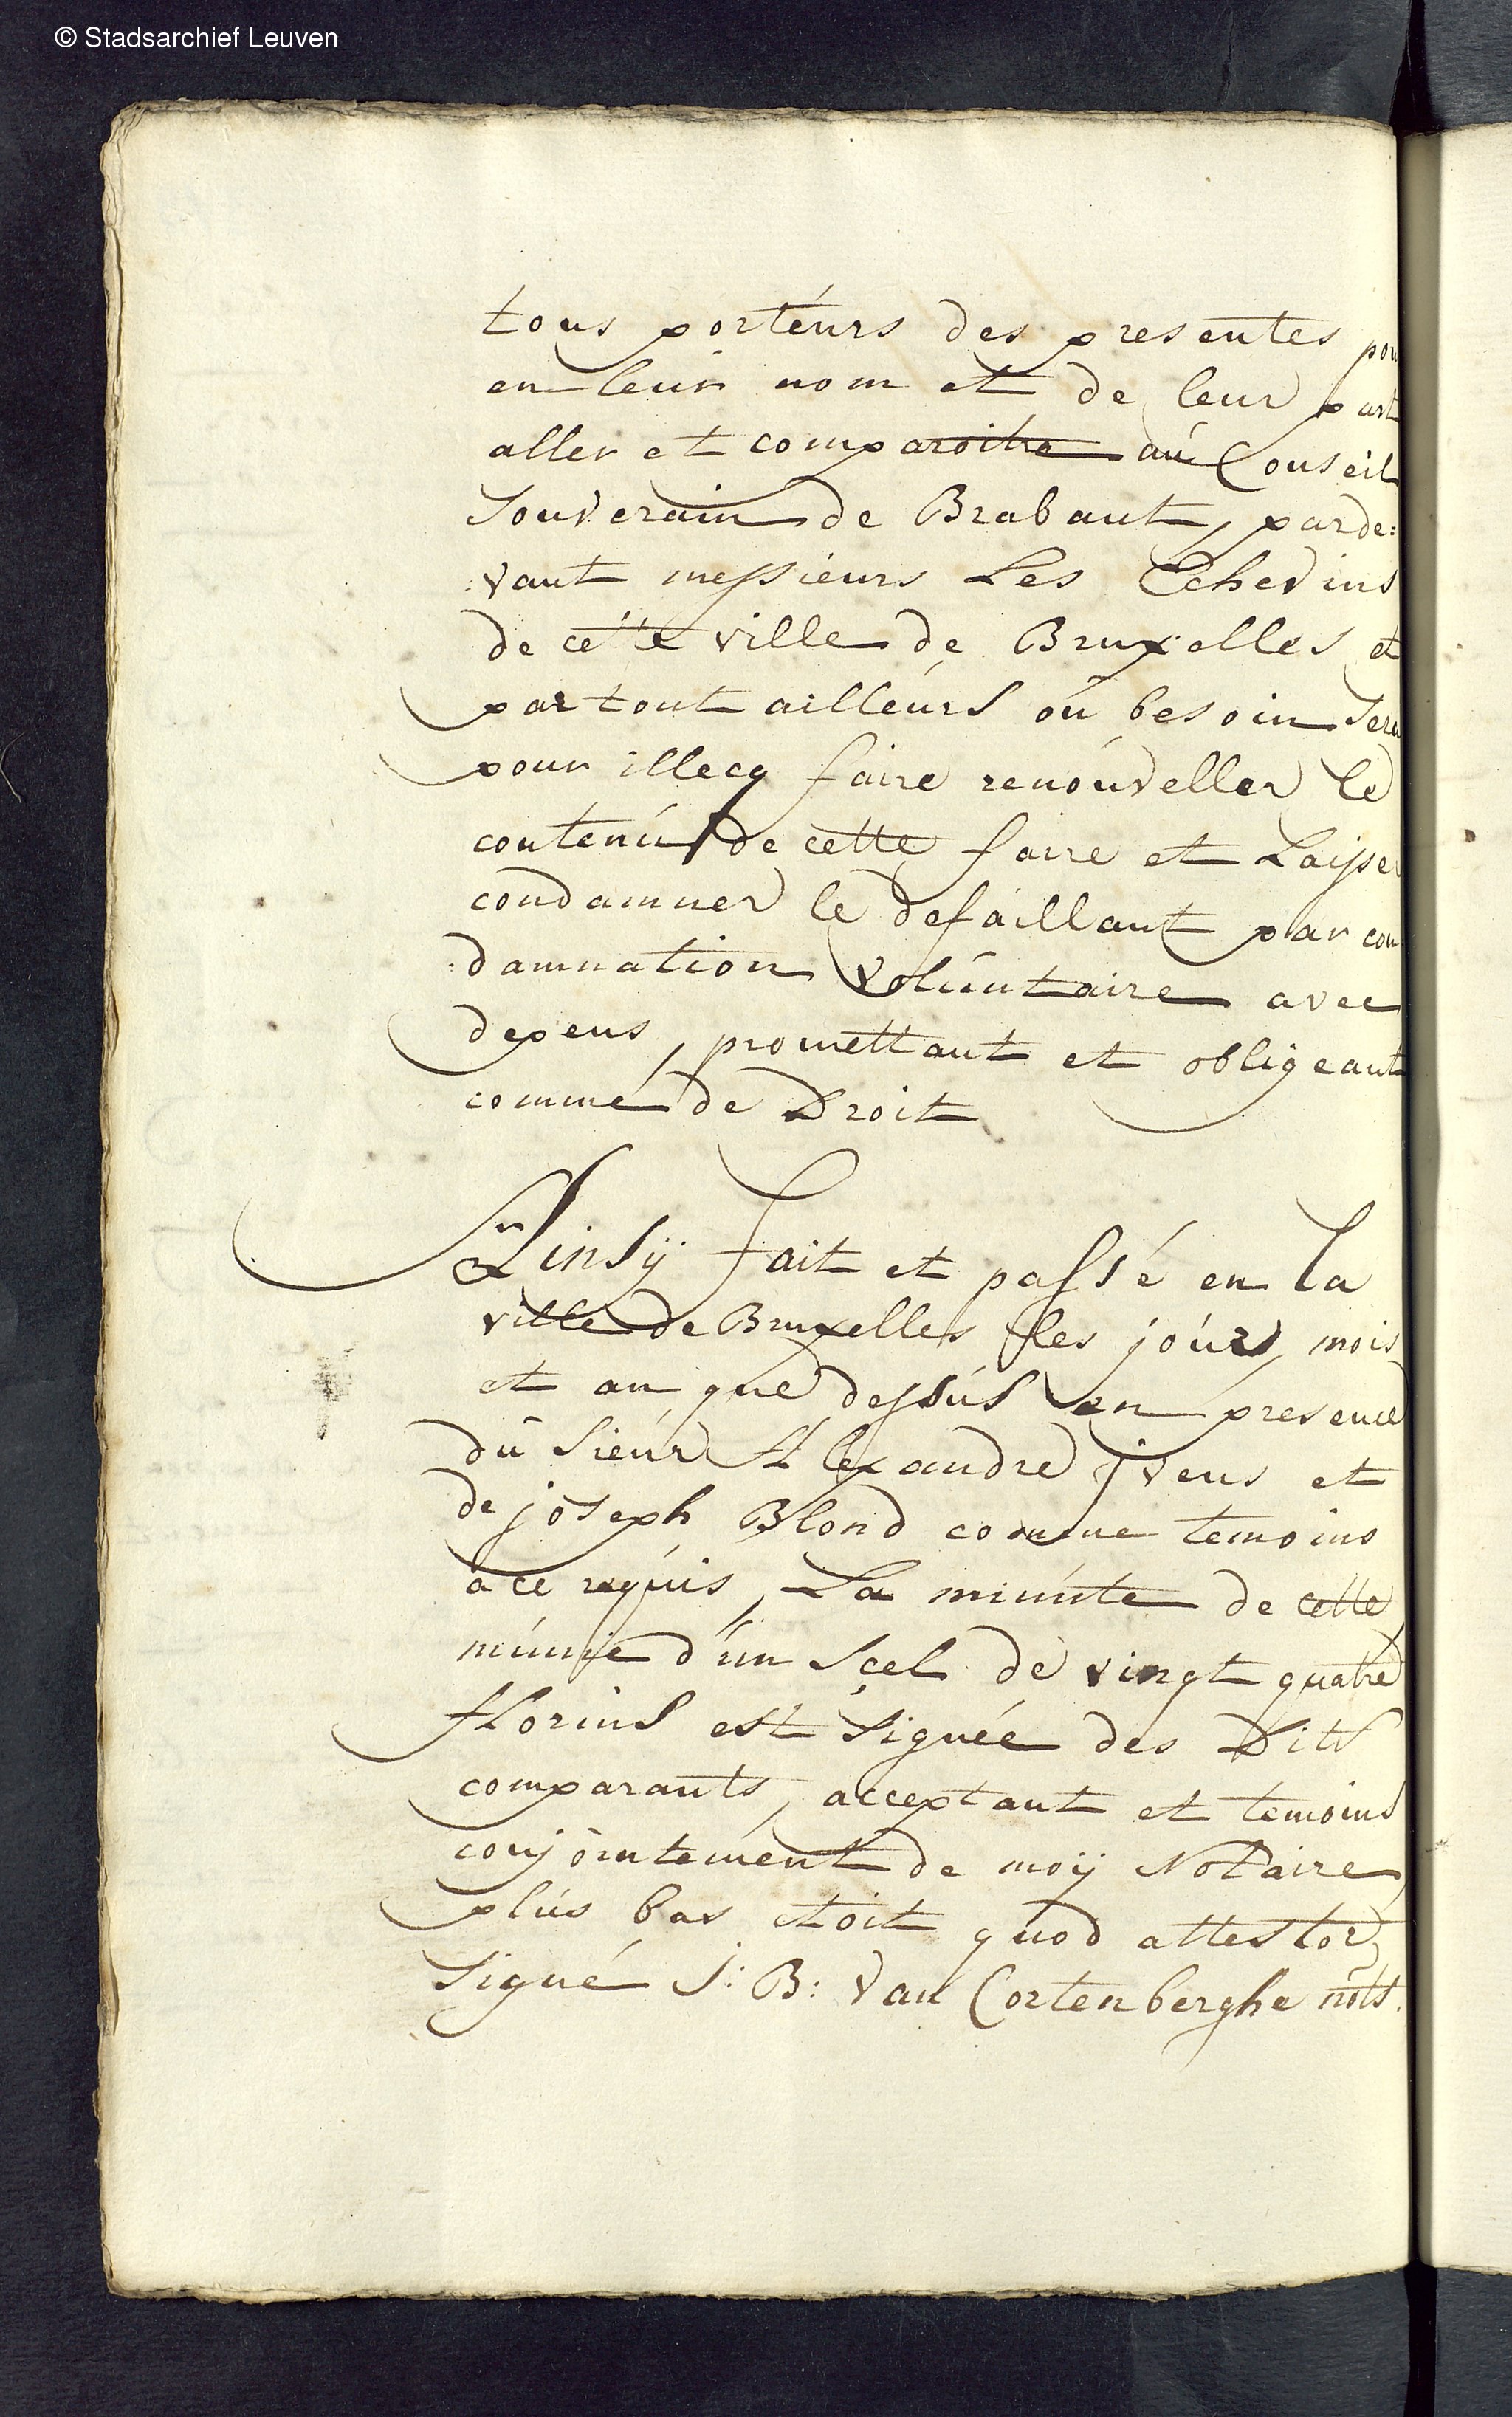 © Stadsarchief Leuven
tous porteurs des presentes pou
en leur nom et de leur part
aller et comparoitre au Conseil
Souverain de Brabant, parde=
=vant messieurs Les Echevins
de cette ville de Bruxelles et
par tout ailleurs ou besoin Sera
pour illecq faire renouveller le
contenu de cette faire et Laisser
condamner le defaillant par con
=damnation voluntaire avec
depens, promettant et obligeant
comme de Droit
Ainsÿ fait et passé en la
ville de Bruxelles les jour, mois
et an que dessus en presence
du Sieur Alexandre jvens et
de joseph Blond comme temoins
a ce requis, La minute de cette
munie d'un Scel de vingt quatre
florins est Signée des Dits
comparants, acceptant et temoins
conjointement de moÿ Notaire,
plus bas etoit quod attestor,
Signé J: B: Van Cortenberghe nots.